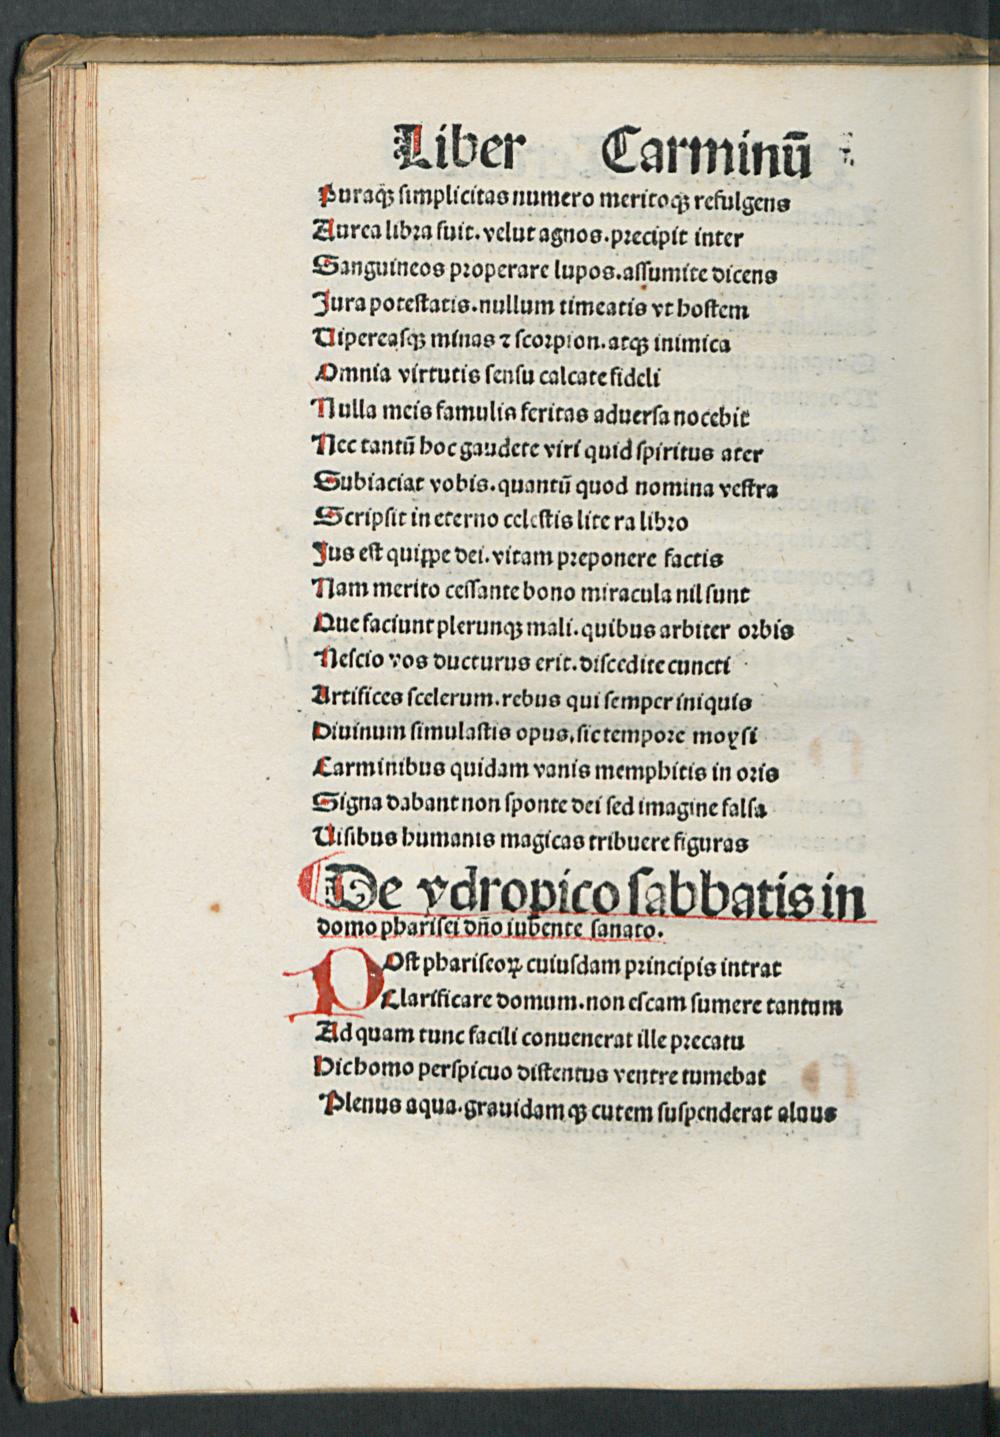 Liber Carminū
Puraqꝫ simplicitas numero meritoqꝫ refulgens
Aurea libra suit. velut agnos. precipit inter
Sanguineos properare lupos. assumite dicens
Jura potestatis. nullum timeatis vt hostem
Uipereasqꝫ minas ⁊ scorpion. atqꝫ inimica
Omnia virtutis sensu calcate fideli
Nulla meis famulis feritas aduersa nocebit
Nec tantū hoc gaudete viri quid spiritus ater
Subiaciat vobis. quantū quod nomina vestra
Scripsit in eterno celestis lite ra libro
Jus est quippe dei. vitam preponere factis
Nam merito cessante bono miracula nil sunt
Que faciunt plerunqꝫ mali. quibus arbiter orbis
Nescio vos ducturus erit. discedite cuncti
Artifices scelerum. rebus qui semper iniquis
Diuinum simulastis opus. sic tempore moysi
Carminibus quidam vanis memphitis in oris
Signa dabant non sponte dei sed imagine falsa
Uisibus humanis magicas tribuere figuras
De ydropico sabbatis in
domo pharisei dn̄o iubente sanato.
POst phariseoꝝ cuiusdam principis intrat
Clarificare domum. non escam sumere tantum
Ad quam tunc facili conuenerat ille precatu
Hic homo perspicuo distentus ventre tumebat
Plenus aqua. grauidam qꝫ cutem suspenderat aluus